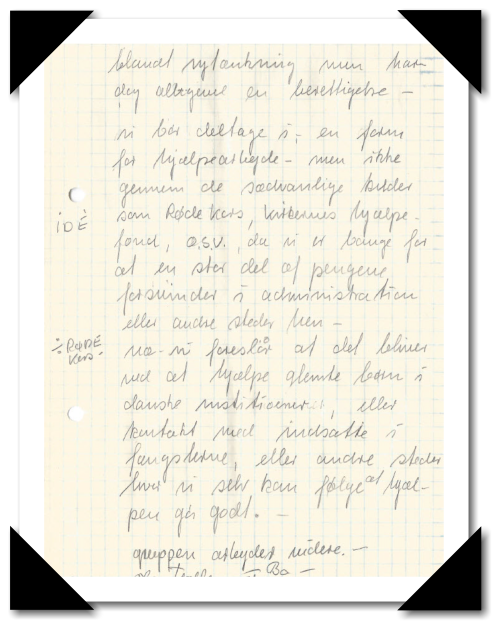 blandt nytænkning men har
dog alligevel en berettigelse –
vi bør deltage i – en form
for hjælpearbejde – men ikke
gennem de sædvanlige kilder
som Røde Kors, kirkernes hjælpe-
IDÉ
fond, O.S.V. da vi er bange for
at en stor del af pengene
forsvinder i administration
eller andre steder hen –
÷ RØDE
Kors –
vi foreslår at det bliver
ved at hjælpe glemte børn i
danske institutioner, eller
kontakt med indsatte i
fængslerne, eller andre steder
hvor vi selv kan følge at hjæl-
pen gør godt. –
gruppen arbejder videre. –
Bo –